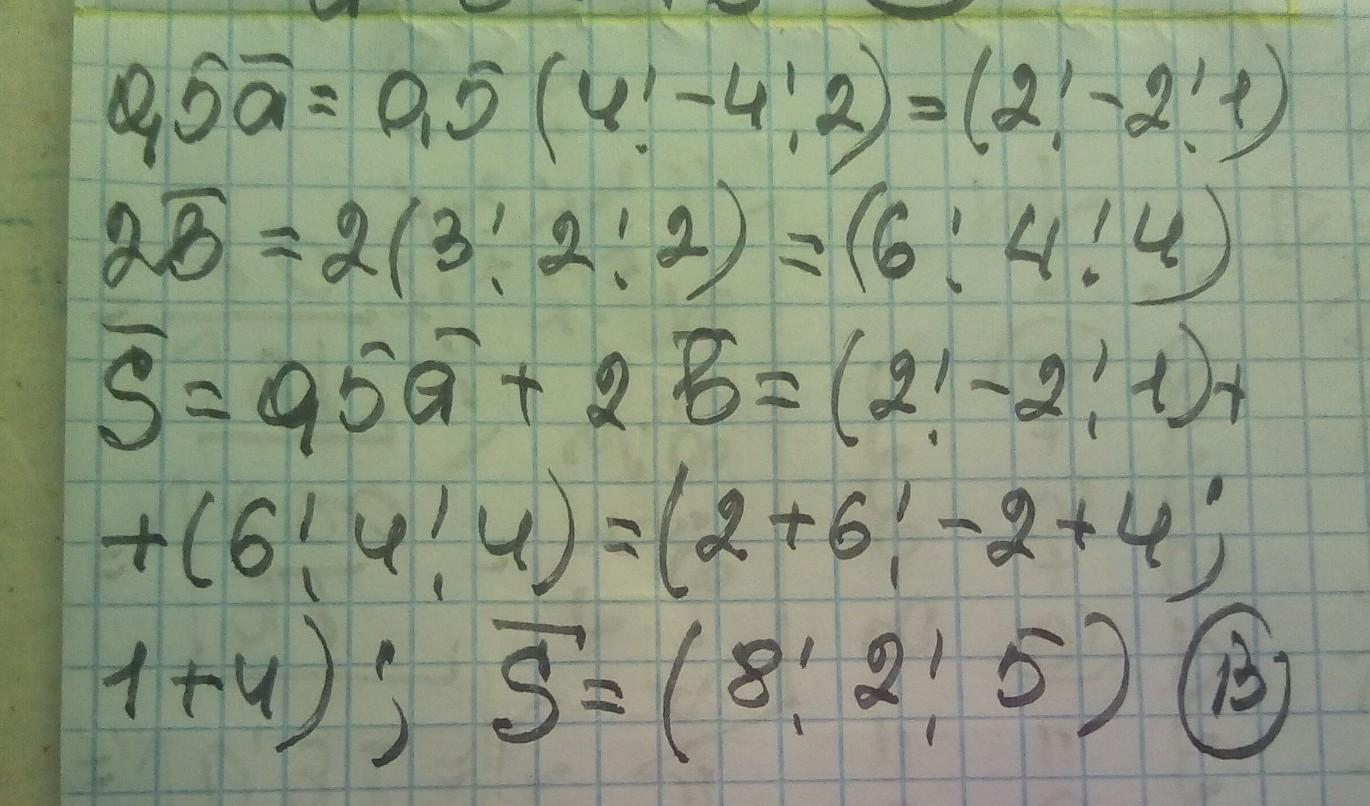 0,5a̅ = 0,5 (4; -4; 2) = (2; -2; 1)
2B̅ = 2(3; 2; 2) = (6; 4; 4)
S̅ = 0,5a̅ + 2B̅ = (2; -2; 1)+
+(6; 4; 4) = (2+6; -2+4;
1+4); S̅ = (8; 2; 5) B